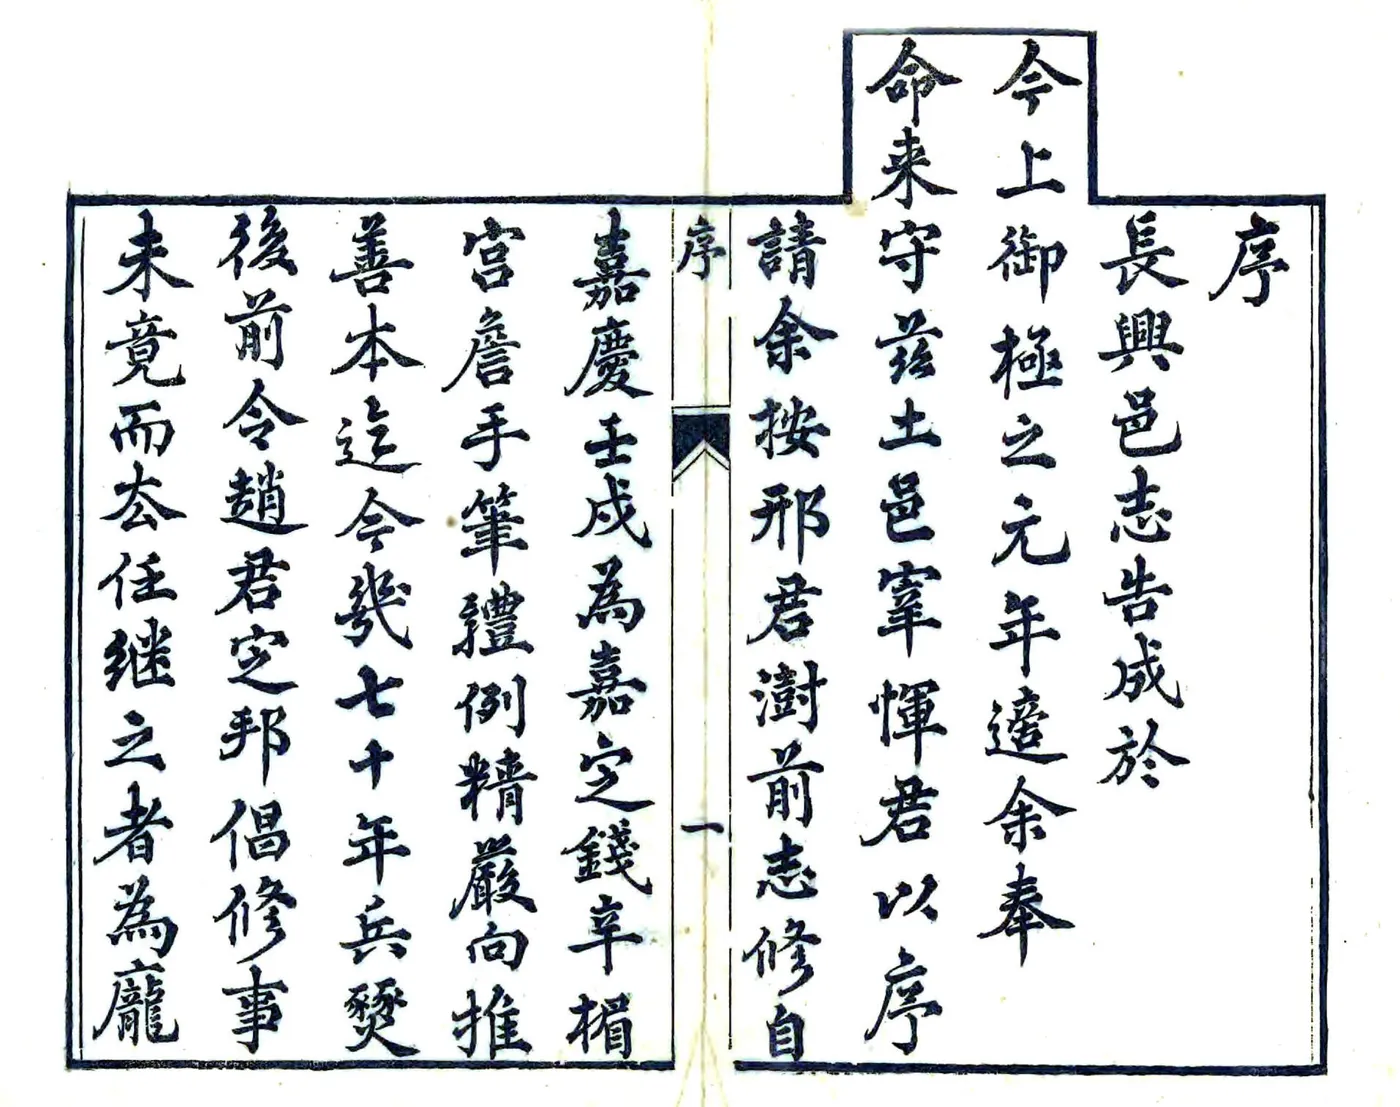 序
長興邑志告成於
今上御極之元年適余奉
命来守茲土邑宰惲君以序
請余按邢君澍前志修自
序
一
嘉慶壬戌為嘉定錢辛楣
宮詹手筆軆例精嚴向推
善本迄今幾七十年兵燹
後前令趙君定邦倡修事
未竟而厺任継之者為龐